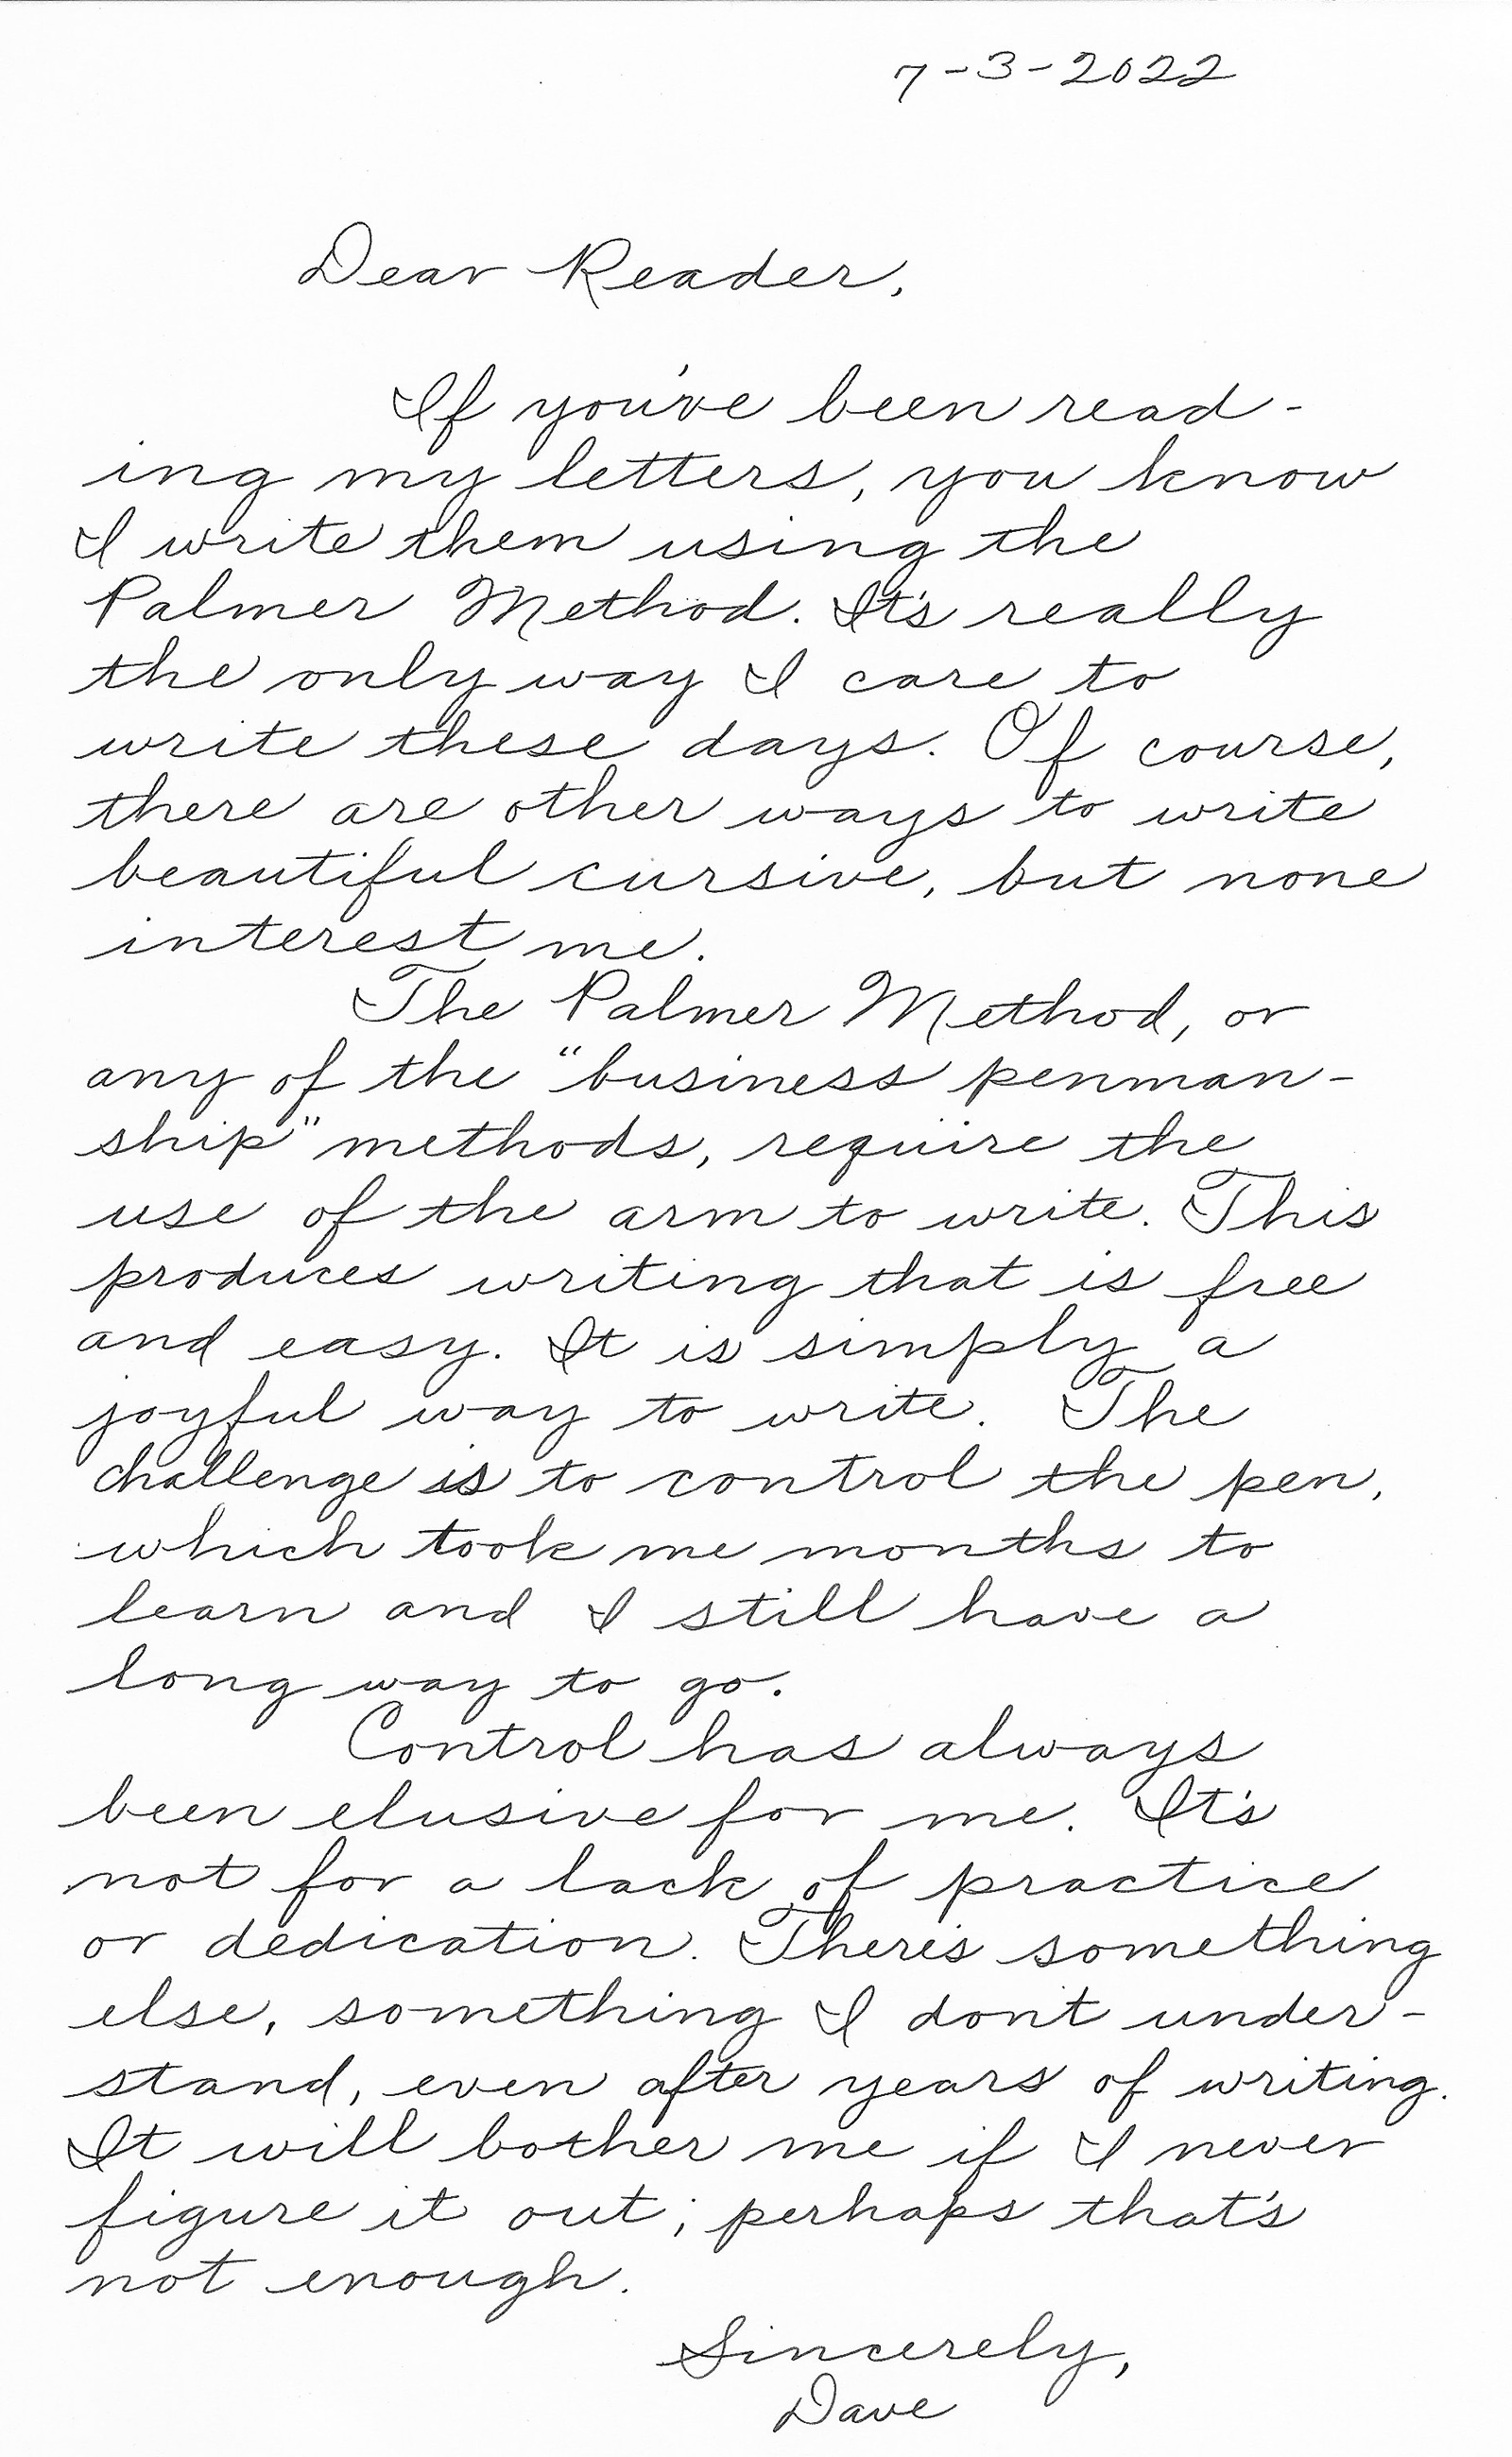 7-3-2022
Dear Reader,
If you've been read-
ing my letters, you know
I write them using the
Palmer Method. It's really
the only way I care to
write these days. Of course,
there are other ways to write
beautiful cursive, but none
interest me.
The Palmer Method, or
any of the "business penman-
ship" methods, require the
use of the arm to write. This
produces writing that is free
and easy. It is simply a
joyful way to write. The
challenge is to control the pen,
which took me months to
learn and I still have a
long way to go.
Control has always
been elusive for me. It's
not for a lack of practice
or dedication. There's something
else, something I don't under-
stand, even after years of writing.
It will bother me if I never
figure it out; perhaps that's
not enough.
Sincerely,
Dave